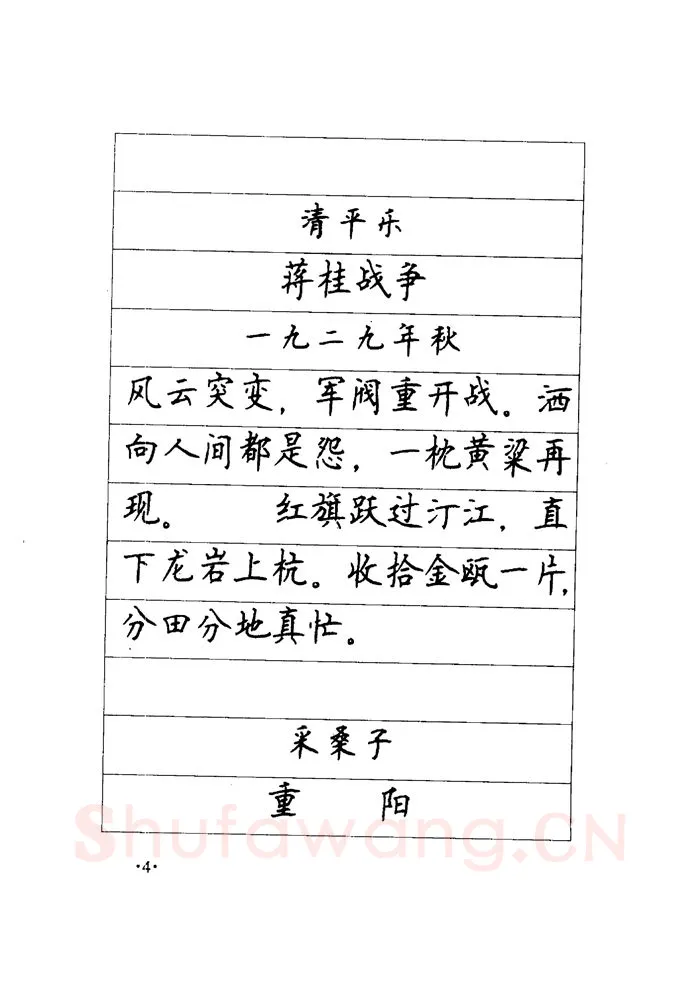 清平乐
蒋桂战争
一九二九年秋
风云突变，军阀重开战。洒
向人间都是怨，一枕黄粱再
现。　　红旗跃过汀江，直
下龙岩上杭。收拾金瓯一片，
分田分地真忙。
采桑子
重　阳
Shufawang.CN
·4·